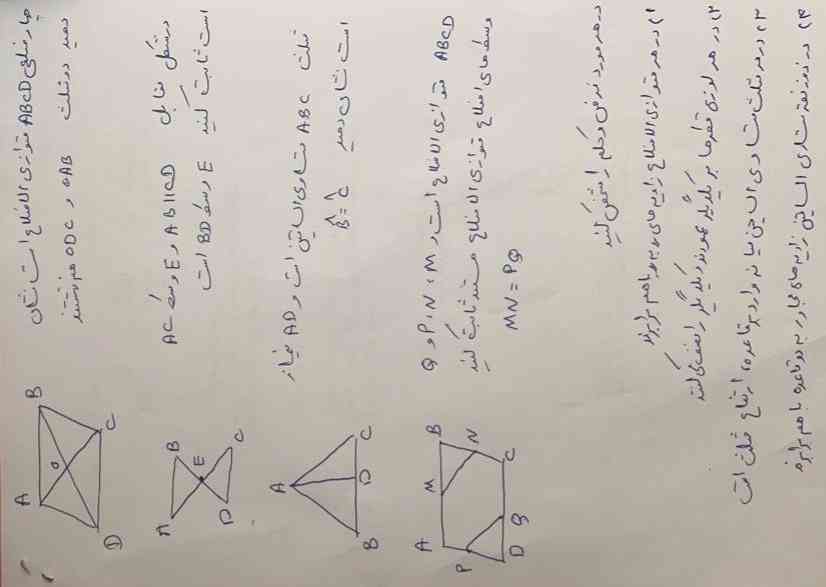 چهار ضلعی ABCD متوازی الاضلاع است نشان
دهید دو مثلث OAB و ODC هم نهشتند
A
B
O
D
C
در شکل مقابل AB||CD و E وسط AC
است ثابت کنید E وسط BD است
A
B
E
D
C
مثلث ABC متساوی الساقین است و AD نیمساز
است نشان دهید B̂ = Ĉ
A
B
D
C
ABCD متوازی الاضلاع است و M، N، P و Q
وسط های اضلاع متوازی الاضلاع هستند ثابت کنید
MN = PQ
A
M
B
N
P
D
Q
C
در هر مورد فرض و حکم را مشخص کنید
۱) در هر متوازی الاضلاع زاویه های روبه رو با هم برابرند
۲) در هر لوزی قطرها بر یکدیگر عمودند و یکدیگر را نصف می کنند
۳) در هر مثلث متساوی الساقین میانه وارد بر قاعده، ارتفاع مثلث است
۴) در ذوزنقه متساوی الساقین زاویه های مجاور به دو قاعده با هم برابرند